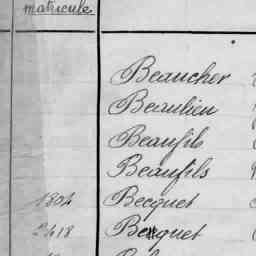 matricule
Beaucher
Beaulieu
Beaufils
Beaufils
1804 Becquet
2418 Becquet